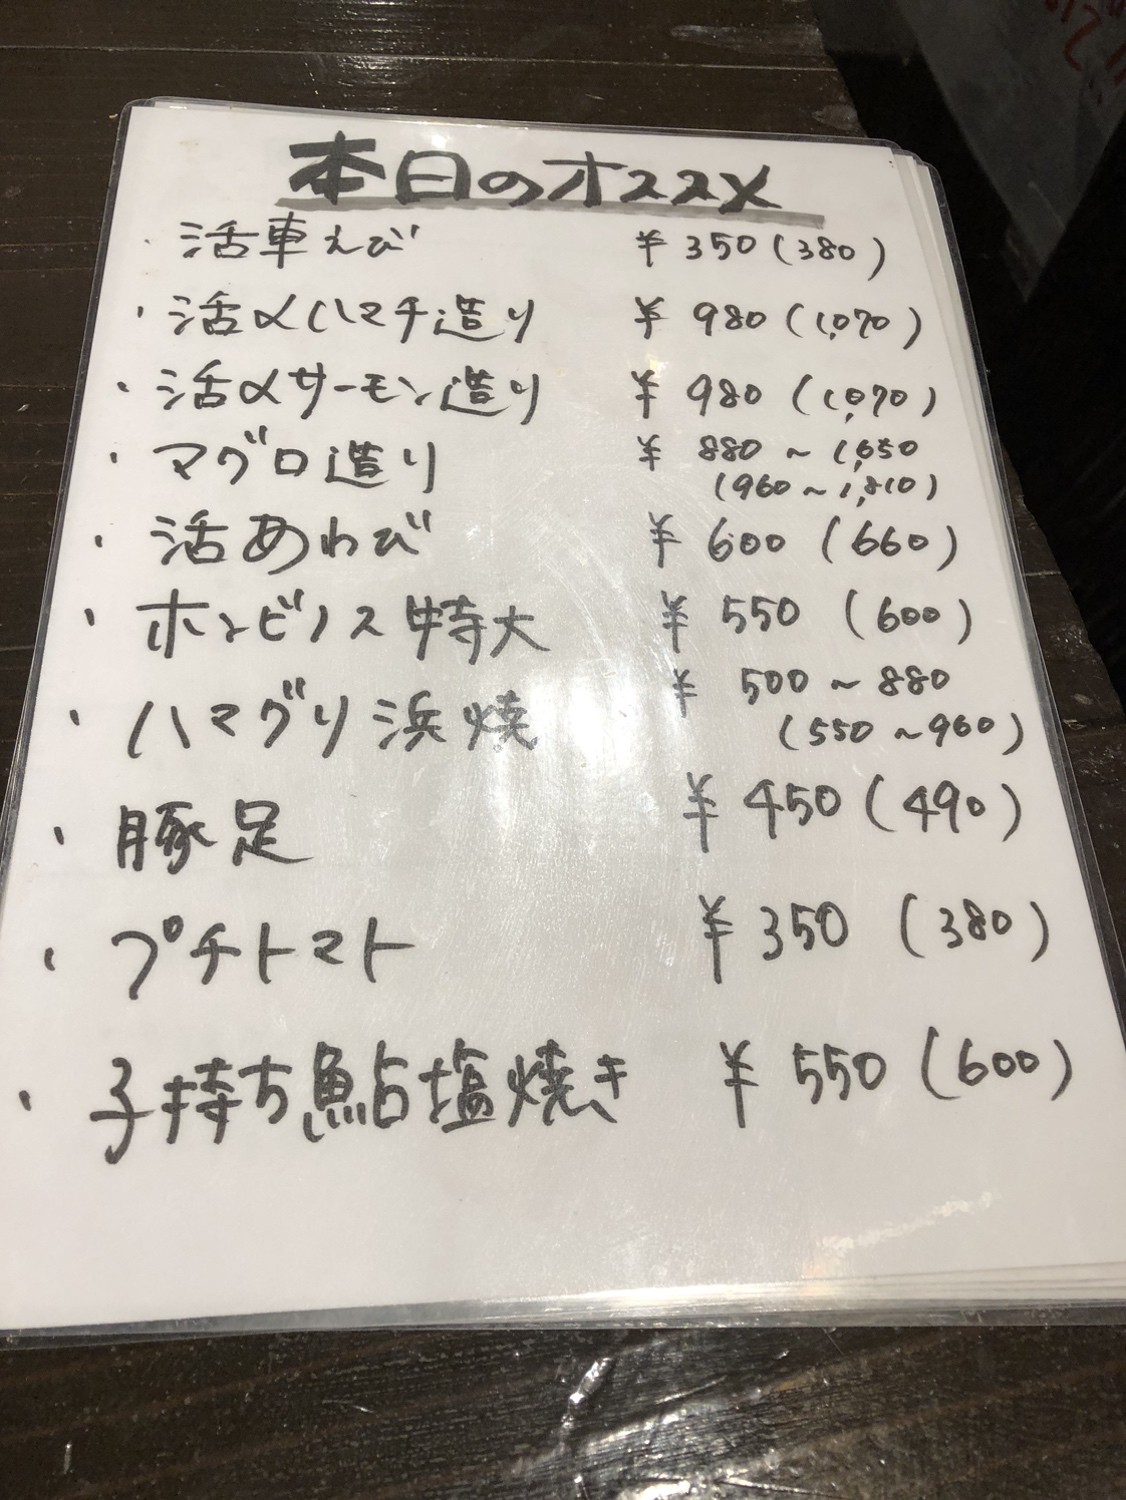 本日のオススメ
・活車えび ¥350(380)
・活〆ハマチ造り ¥980(1,070)
・活〆サーモン造り ¥980(1,070)
・マグロ造り ¥880~1,650
(960~1,810)
・活あわび ¥600(660)
・ホンビノス特大 ¥550(600)
・ハマグリ浜焼 ¥500~880
(550~960)
・豚足 ¥450(490)
・プチトマト ¥350(380)
・子持ち鮎塩焼き ¥550(600)